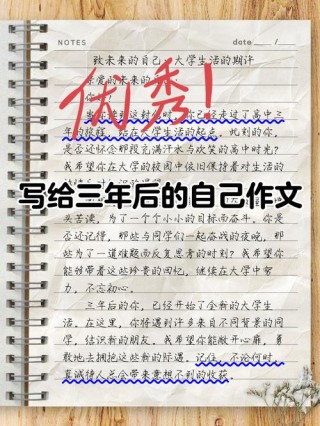 NOTES
date
致未来的自己：大学生活的期许
亲爱的未来的
优秀！
你好！
当你
这封
时，你已经走过了高中三
年的旅程，站在大学生活的起点。此刻的你，
是否还怀念那段充满汗水与欢笑的高中时光？
我希望你在大学的校园中依旧保持着对生活的
写给三年后的自己作文
关苦读，为了一个个小小的目标而奋斗。你是
否还记得，那些与同学们一起奋战的夜晚，那
些为了一道难题而反复思考的时刻？我希望你
能够带着这些珍贵的回忆，继续在大学中努
力，不忘初心。
三年后的你，已经开始了全新的大学生
活。在这里，你将遇到许多来自不同背景的同
学，结识新的朋友。我希望你能敞开心扉，勇
敢地去拥抱这些新的际遇。记住，不论何时，
真诚待人总会带来意想不到的收获。